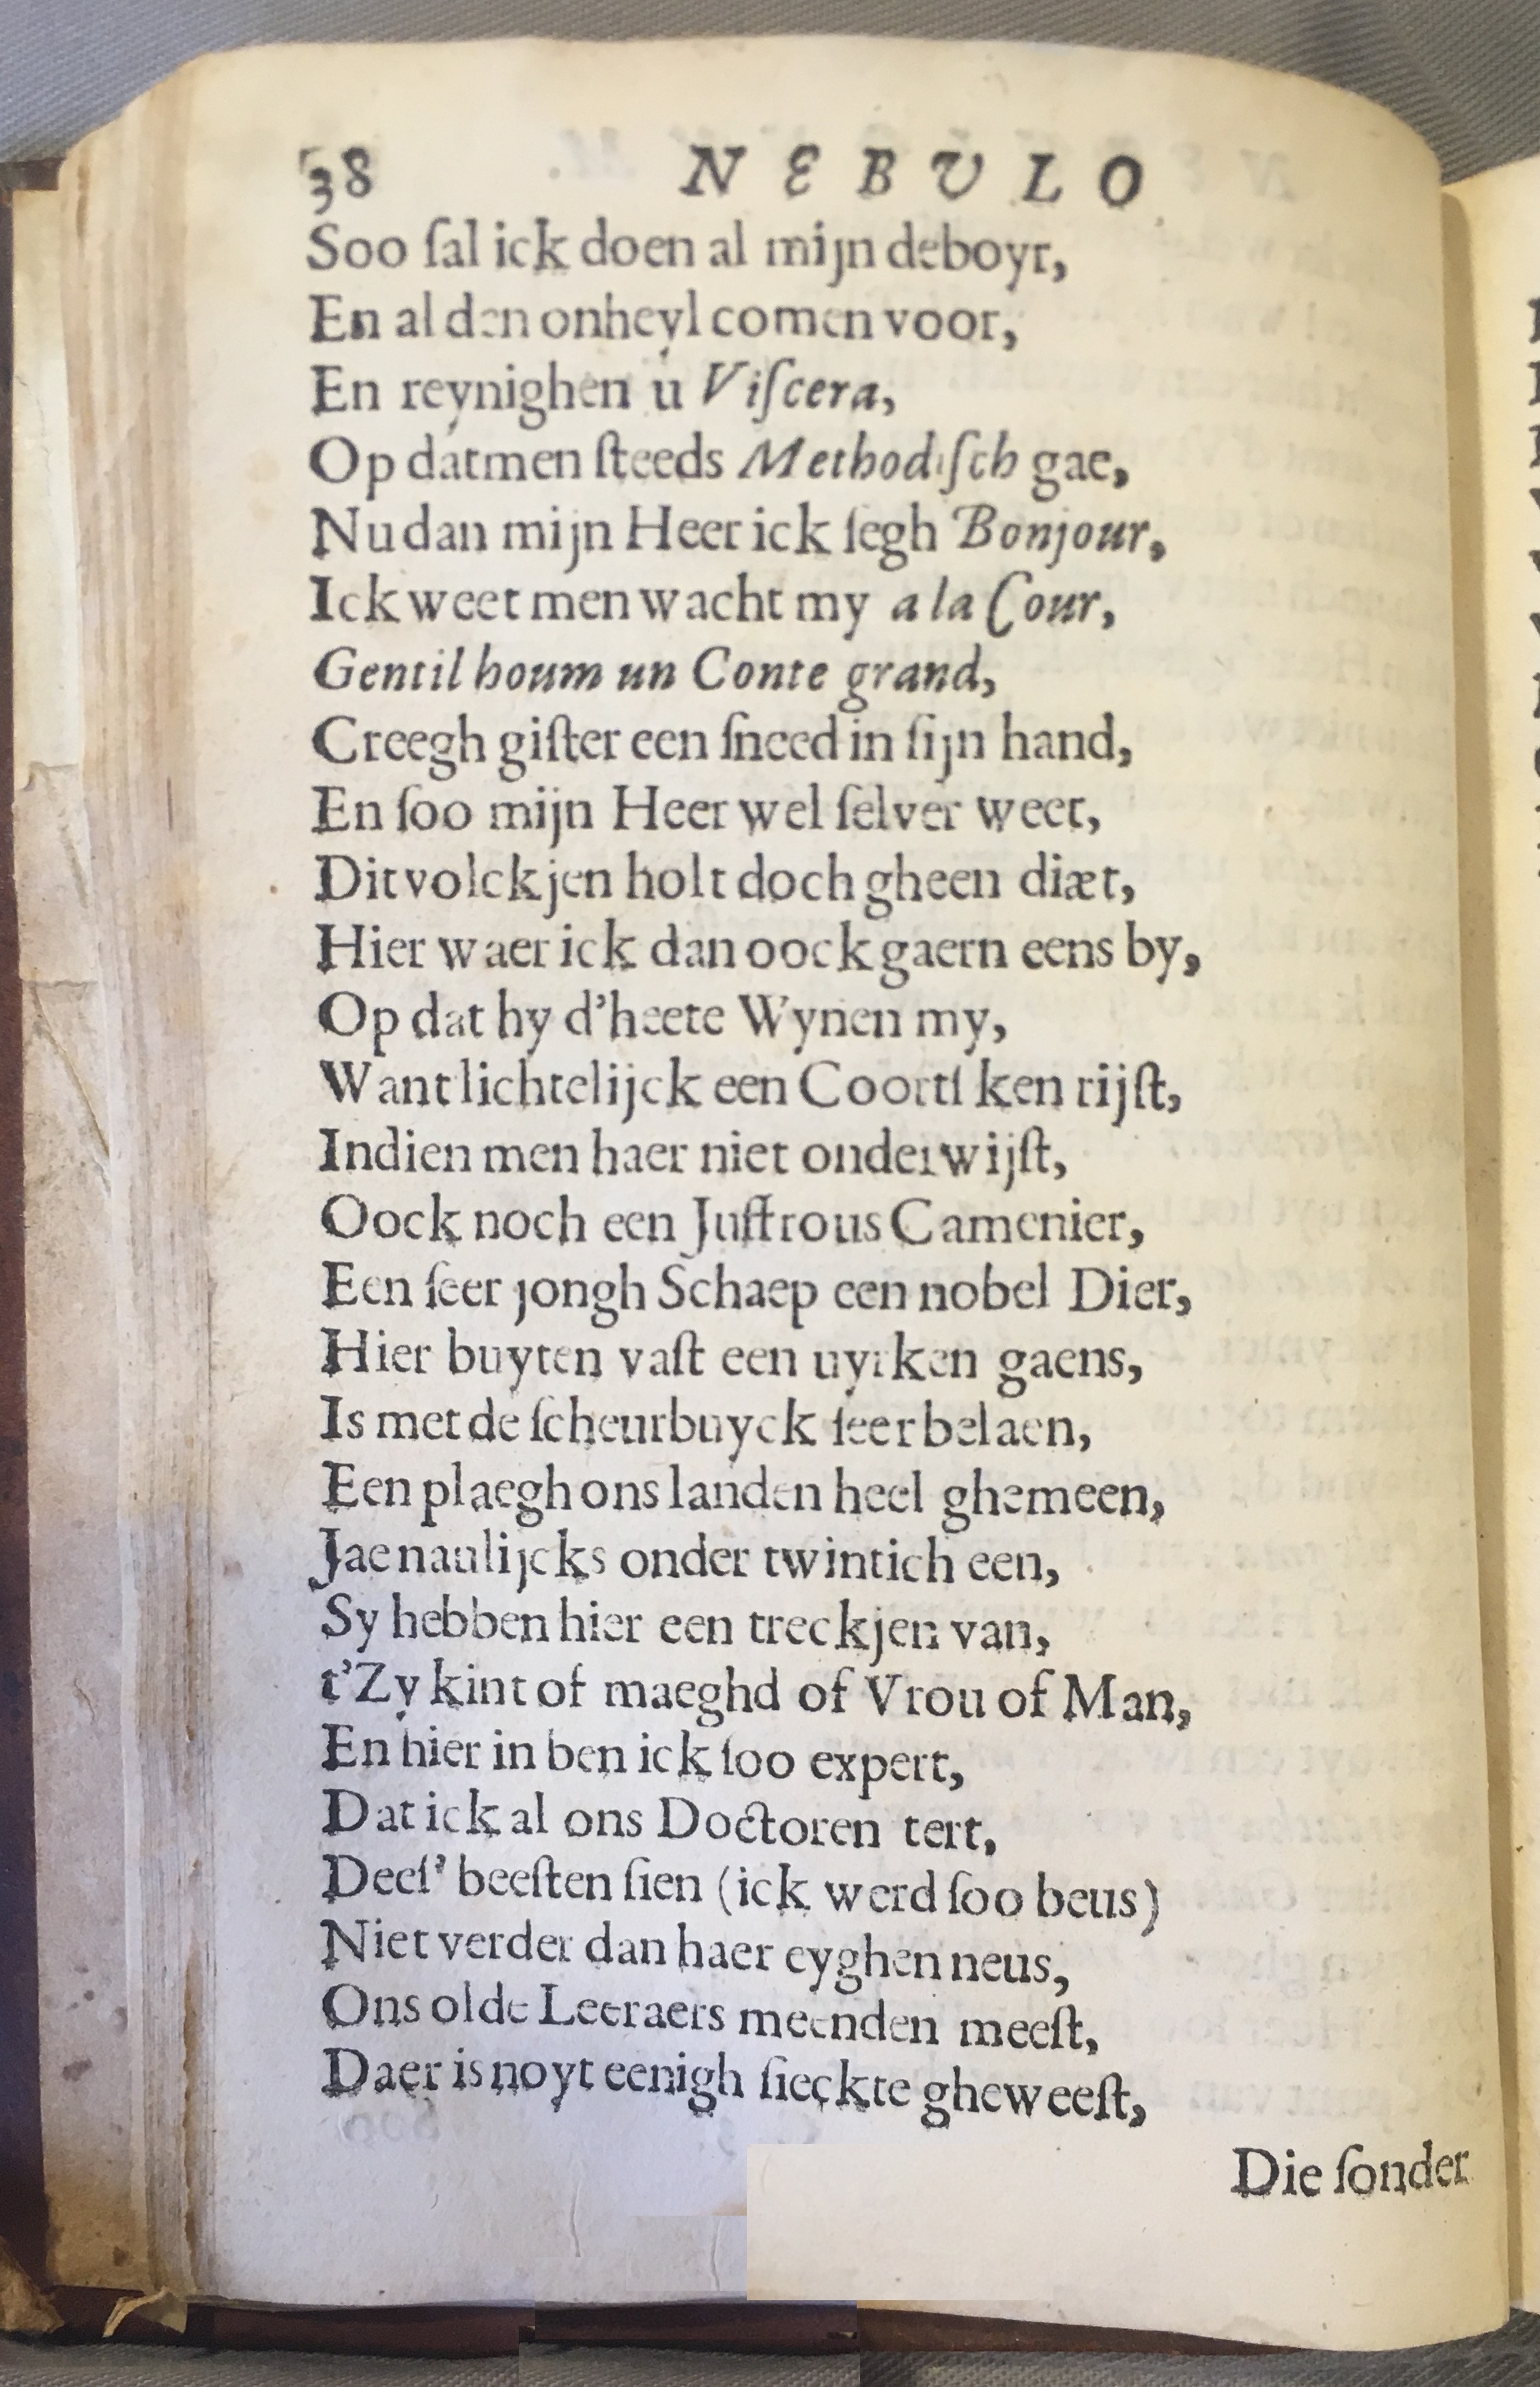 38 NEBVLO
Soo ſal ick doen al mijn deboyr,
En al den onheyl comen voor,
En reynighen u Viſcera,
Op datmen ſteeds Methodiſch gae,
Nu dan mijn Heer ick ſegh Bonjour,
Ick weet men wacht my a la Cour,
Gentil houm un Conte grand,
Creegh giſter een ſneed in ſijn hand,
En ſoo mijn Heer wel ſelver weet,
Dit volckjen holt doch gheen diæt,
Hier waer ick dan oock gaern eens by,
Op dat hy d'heete Wynen my,
Want lichtelijck een Coortſken rijſt,
Indien men haer niet onderwijſt,
Oock noch een Juffrous Camenier,
Een ſeer jongh Schaep een nobel Dier,
Hier buyten vaſt een uyrken gaens,
Is met de ſcheurbuyck ſeer belaen,
Een plaegh ons landen heel ghemeen,
Jae naulijcks onder twintich een,
Sy hebben hier een treckjen van,
t'Zy kint of maeghd of Vrou of Man,
En hier in ben ick ſoo expert,
Dat ick al ons Doctoren tert,
Deeſ' beeſten ſien (ick werd ſoo beus)
Niet verder dan haer eyghen neus,
Ons olde Leeraers meenden meeſt,
Daer is noyt eenigh ſieckte gheweeſt,
Die ſonder